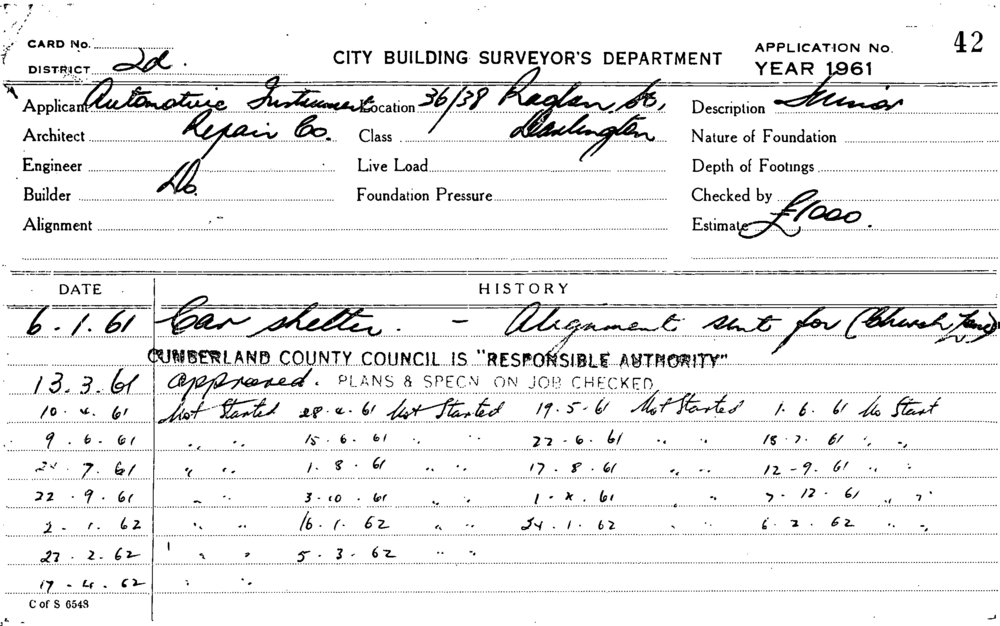 42
CARD No.
DISTRICT 2d.
CITY BUILDING SURVEYOR'S DEPARTMENT
APPLICATION No.
YEAR 1961
Applicant Automotive Instrument Location 36/38 Raglan St., Description
Architect Repair Co. Class Darlington Nature of Foundation
Engineer Live Load Depth of Footings
Builder Do. Foundation Pressure Checked by
Alignment Estimate £1000.
DATE HISTORY
6.1.61 Car shelter. - Alignment sent for (Church Lane)
CUMBERLAND COUNTY COUNCIL IS "RESPONSIBLE AUTHORITY"
13.3.61 approved. PLANS & SPECN ON JOB CHECKED
10.4.61 Not Started 28.4.61 Not Started 19.5.61 Not Started 1.6.61 No Start
9.6.61 " " 15.6.61 " " 22.6.61 " " 18.7.61 " "
7.61 " " 1.8.61 " " 17.8.61 " " 12-9.61 " "
22.9.61 " " 3.10.61 " " 1-x.61 " 7-12-61 " "
2.1.62 " " 16.1.62 " " 24.1.62 " " 6.2.62 " "
22.2.62 " " 5.3.62 " "
17.4.62 " "
C of S 6548